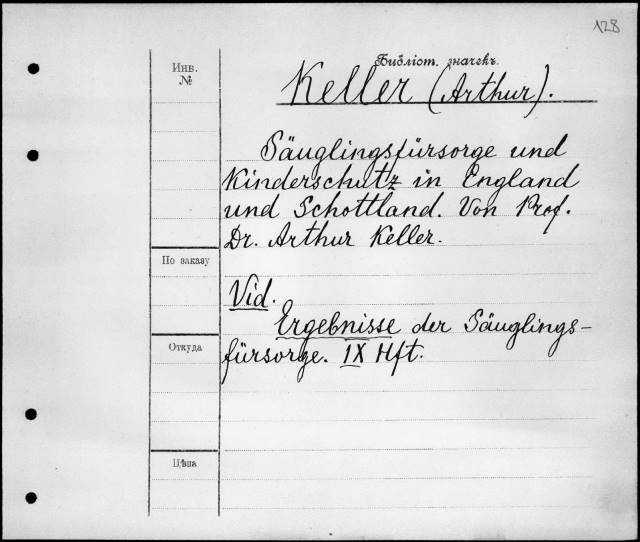 128
Библіот. значекъ.
Инв.
№
Keller (Arthur).
Säuglingsfürsorge und
Kinderschutz in England
und Schottland. Von Prof.
Dr. Arthur Keller.
По заказу
Vid.
Ergebnisse der Säuglings-
Откуда
fürsorge. IX Hft.
Цѣна